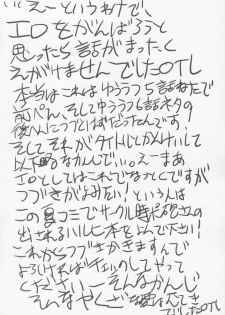 いえーというわけで、
エロをがんばろうと
思ったら話がまったく
えがけませんでしたOTL
本当はこれはゆううつ5話ねたで
前ペん、そしてゆううつ6話ネタの
後へんにつづくはずだったんです!
そしてそれがタイトルとかけいして
以下略なかんじで…。えーまあ
エロとしてはこれでなっとくですが
つづきがよみたい!という人は
この夏コミでサークル
出されるハルヒ本をよんで下さい!
これからつづきかきますんで
よろければチェックしてやって
ください… そんなかんじ
そんなやくざな
でしたOTL